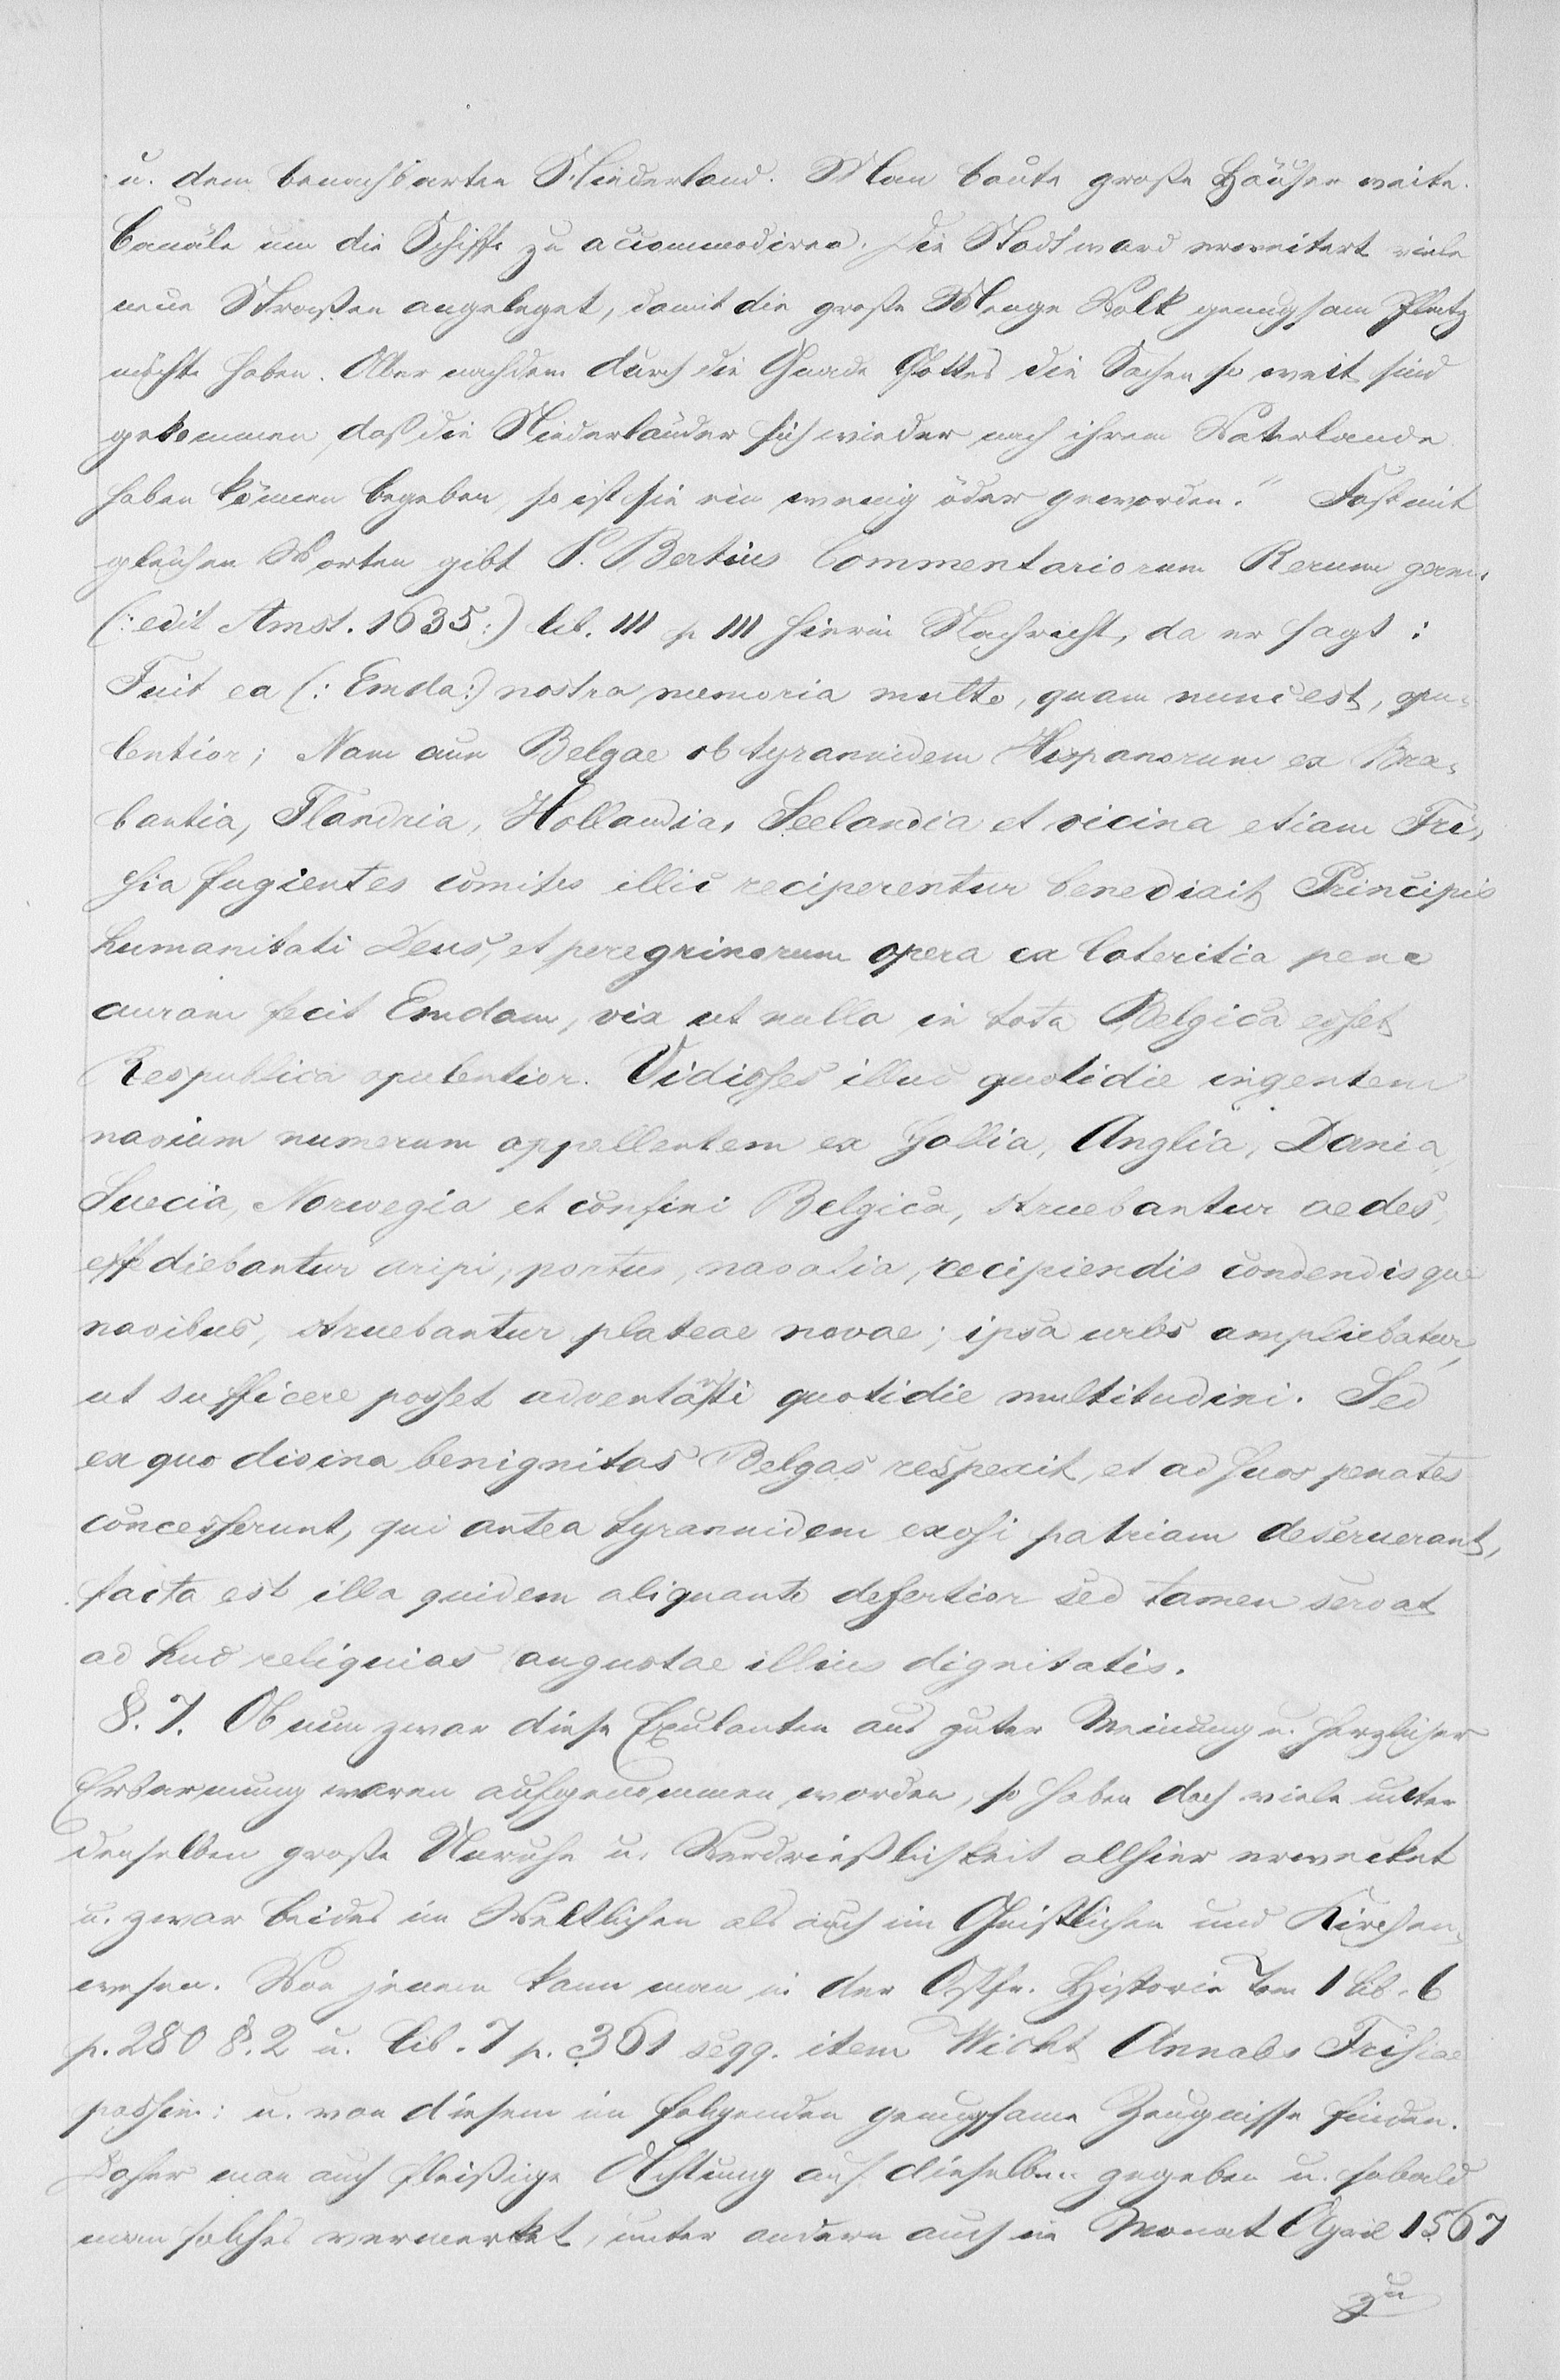 u. dem benachbarten Niederland. Man baute große Häuser weite
Canäle um die Schiffe zu accommodiren. Die Stadt ward erweitert viele
neue Straßen angeleget, damit die große Menge Volk genugsam Platz
möchte haben. Aber nachdem durch die Gnade Gottes die Sachen so weit sind
gekommen, daß die Niederländer sich wieder nach ihrem Vaterlande
haben können begeben, so ist sie ein wenig öder geworden." Fast mit
gleichen Worten gibt P. Bertius Commentariorum Rerum germ.
(: edit Amst. 1635:) lib. III p 111 hierin Nachricht, da er sagt:
Fuit ea (: Emda:) nostra memoria multo, quam nunc est, opu-
lentior; Nam cum Belgae ob tyrannidem Hispanorum ex Bra-
bantia, Flandria, Hollandia, Seelandia et vicina etiam Fri-
sia fugientes comites illic reciperentur benedixit Principis
humanitati Deus, et peregrinorum opera ex lateritia pene
auram fecit Emdam, vix ut nulla in tota Belgica esset
Respublica opulentior. Vidisses illuc quotidie ingentem
navium numerum appellentem ex Gallia, Anglia, Dania,
Suecia, Norwegia et confini Belgica, struebantur aedes,
effodiebantur cripi, portus, navalia, recipiendis condendisque
navibus, struebantur plateae novae; ipsa urbs ampliebatur,
ut sufficere posset adventanti quotidie multitudini. Sed
ex quo divina benignitas Belgas respexit, et ad suos penates
concesserunt, qui antea tyrannidem exosi patriam deseruerant,
facta est illa quidem aliquanto desertior sed tamen servat
ad huc reliquias augustae illius dignitatis.
§. 7. Ob nun zwar diese Exulanten aus guter Meinung u. herzlicher
Erbarmung waren aufgenommen worden, so haben doch viele unter
denselben große Unruhe u. Verdrießlichkeit allhier erwecket
u. zwar beides im Weltlichen als auch im Geistlichen und Kirchen-
wesen. Von jenem kann man in der Ostfr. Historie Tom 1 lib. 6
p. 280 §. 2 u. lib. 7 p. 361 seqq. item Wicht Annales Frisiae
passim: u. von diesem im folgenden genugsame Zeugnisse finden.
Daher man auch fleißige Achtung auf dieselben gegeben u. sobald
man solches vermerket, unter andern auch im Monat April 1567
zu